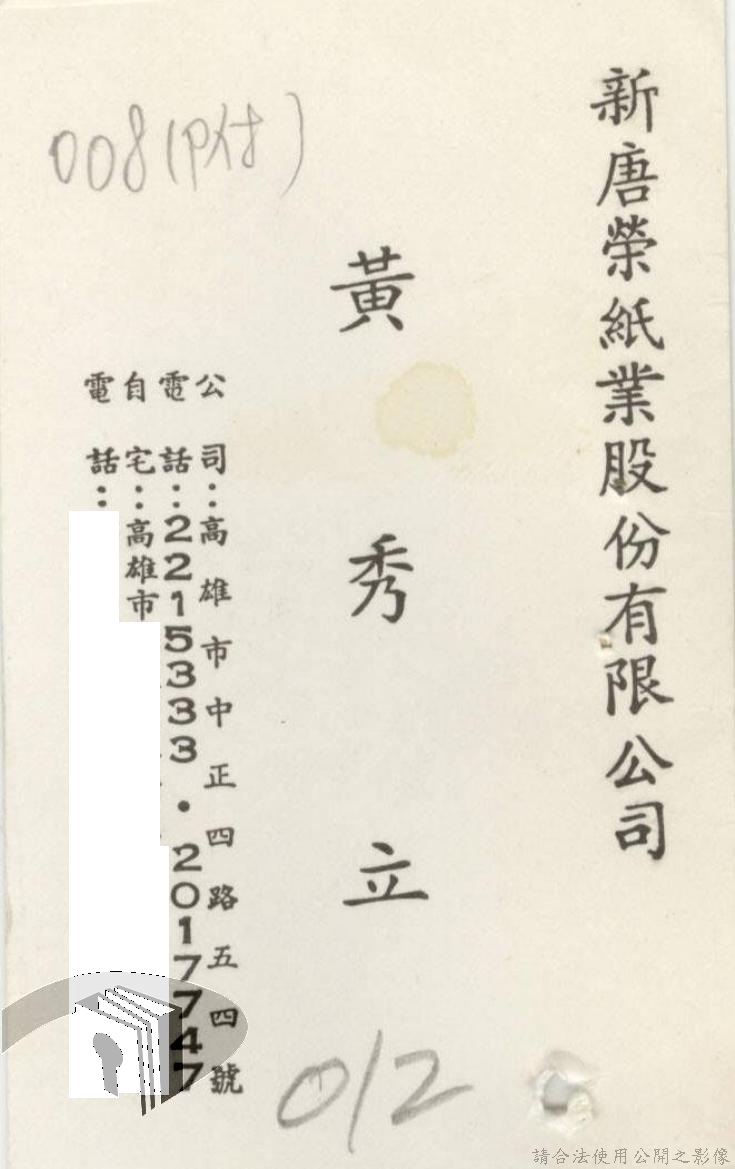 新唐榮紙業股份有限公司
黃秀立
公司：高雄市中正四路五四號
電話：2215333．2017747
自宅：高雄市
電話：
008(附)
012
請合法使用公開之影像